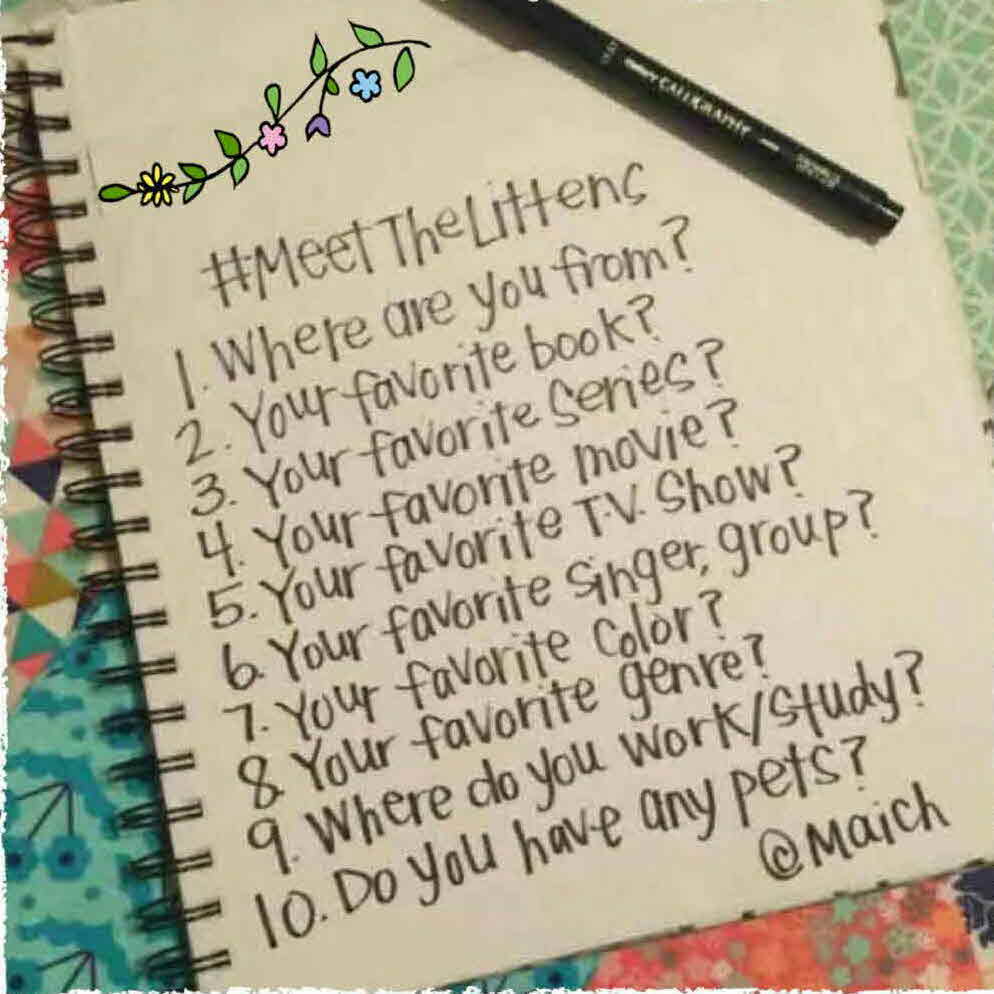 CALLIGRAPHY
#MeetTheLittens
1. Where are you from?
2. Your favorite book?
3. Your favorite Series?
4. Your favorite movie?
5. Your favorite T.V. Show?
6. Your favorite Singer, group?
7. Your favorite Color?
8. Your favorite genre?
9. Where do you work/study?
10. Do you have any pets?
@Maich